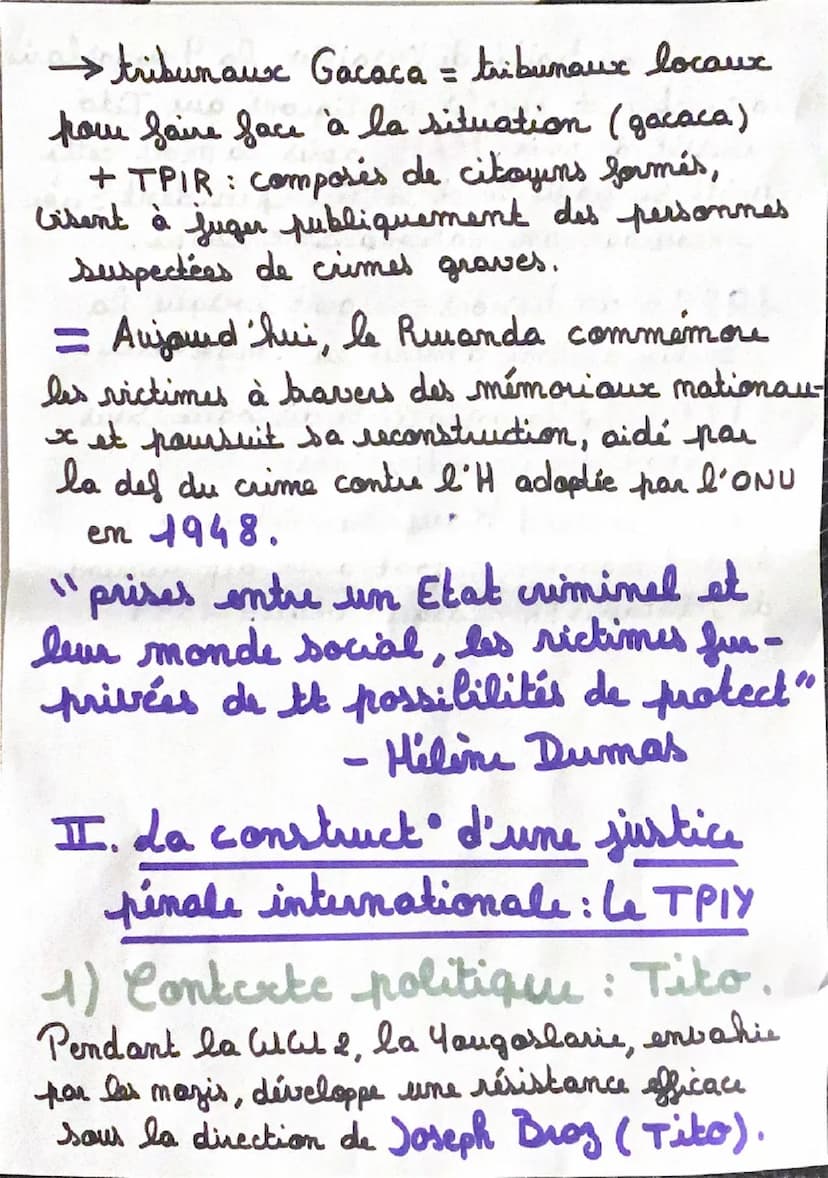 → tribunaux Gacaca = tribunaux locaux
pour faire face à la situation (gacaca)
+ TPIR : composés de citoyens formés,
visent à juger publiquement des personnes
suspectées de crimes graves.
= Aujourd'hui, le Rwanda commémore
les victimes à travers des mémoriaux nationau-
x et poursuit sa reconstruction, aidé par
la def du crime contre l'H adoptée par l'ONU
en 1948.
"prises entre un Etat criminel et
leur monde social, les victimes fur-
privées de tt possibilités de protect"
- Hélène Dumas
II. La construct° d'une justice
pénale internationale : Le TPIY
1) Contexte politique : Tito.
Pendant la GM 2, la Yougoslavie, envahie
par les nazis, développe une résistance efficace
sous la direction de Joseph Broz (Tito).